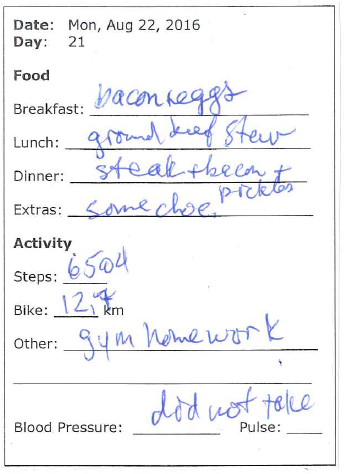 Date: Mon, Aug 22, 2016
Day: 21
Food
Breakfast: bacon + eggs
Lunch: ground beef stew
Dinner: steak + bacon +
pickles
Extras: some choc.
Activity
Steps: 6504
Bike: 12,7 km
Other: gym homework
did not take
Blood Pressure: Pulse: